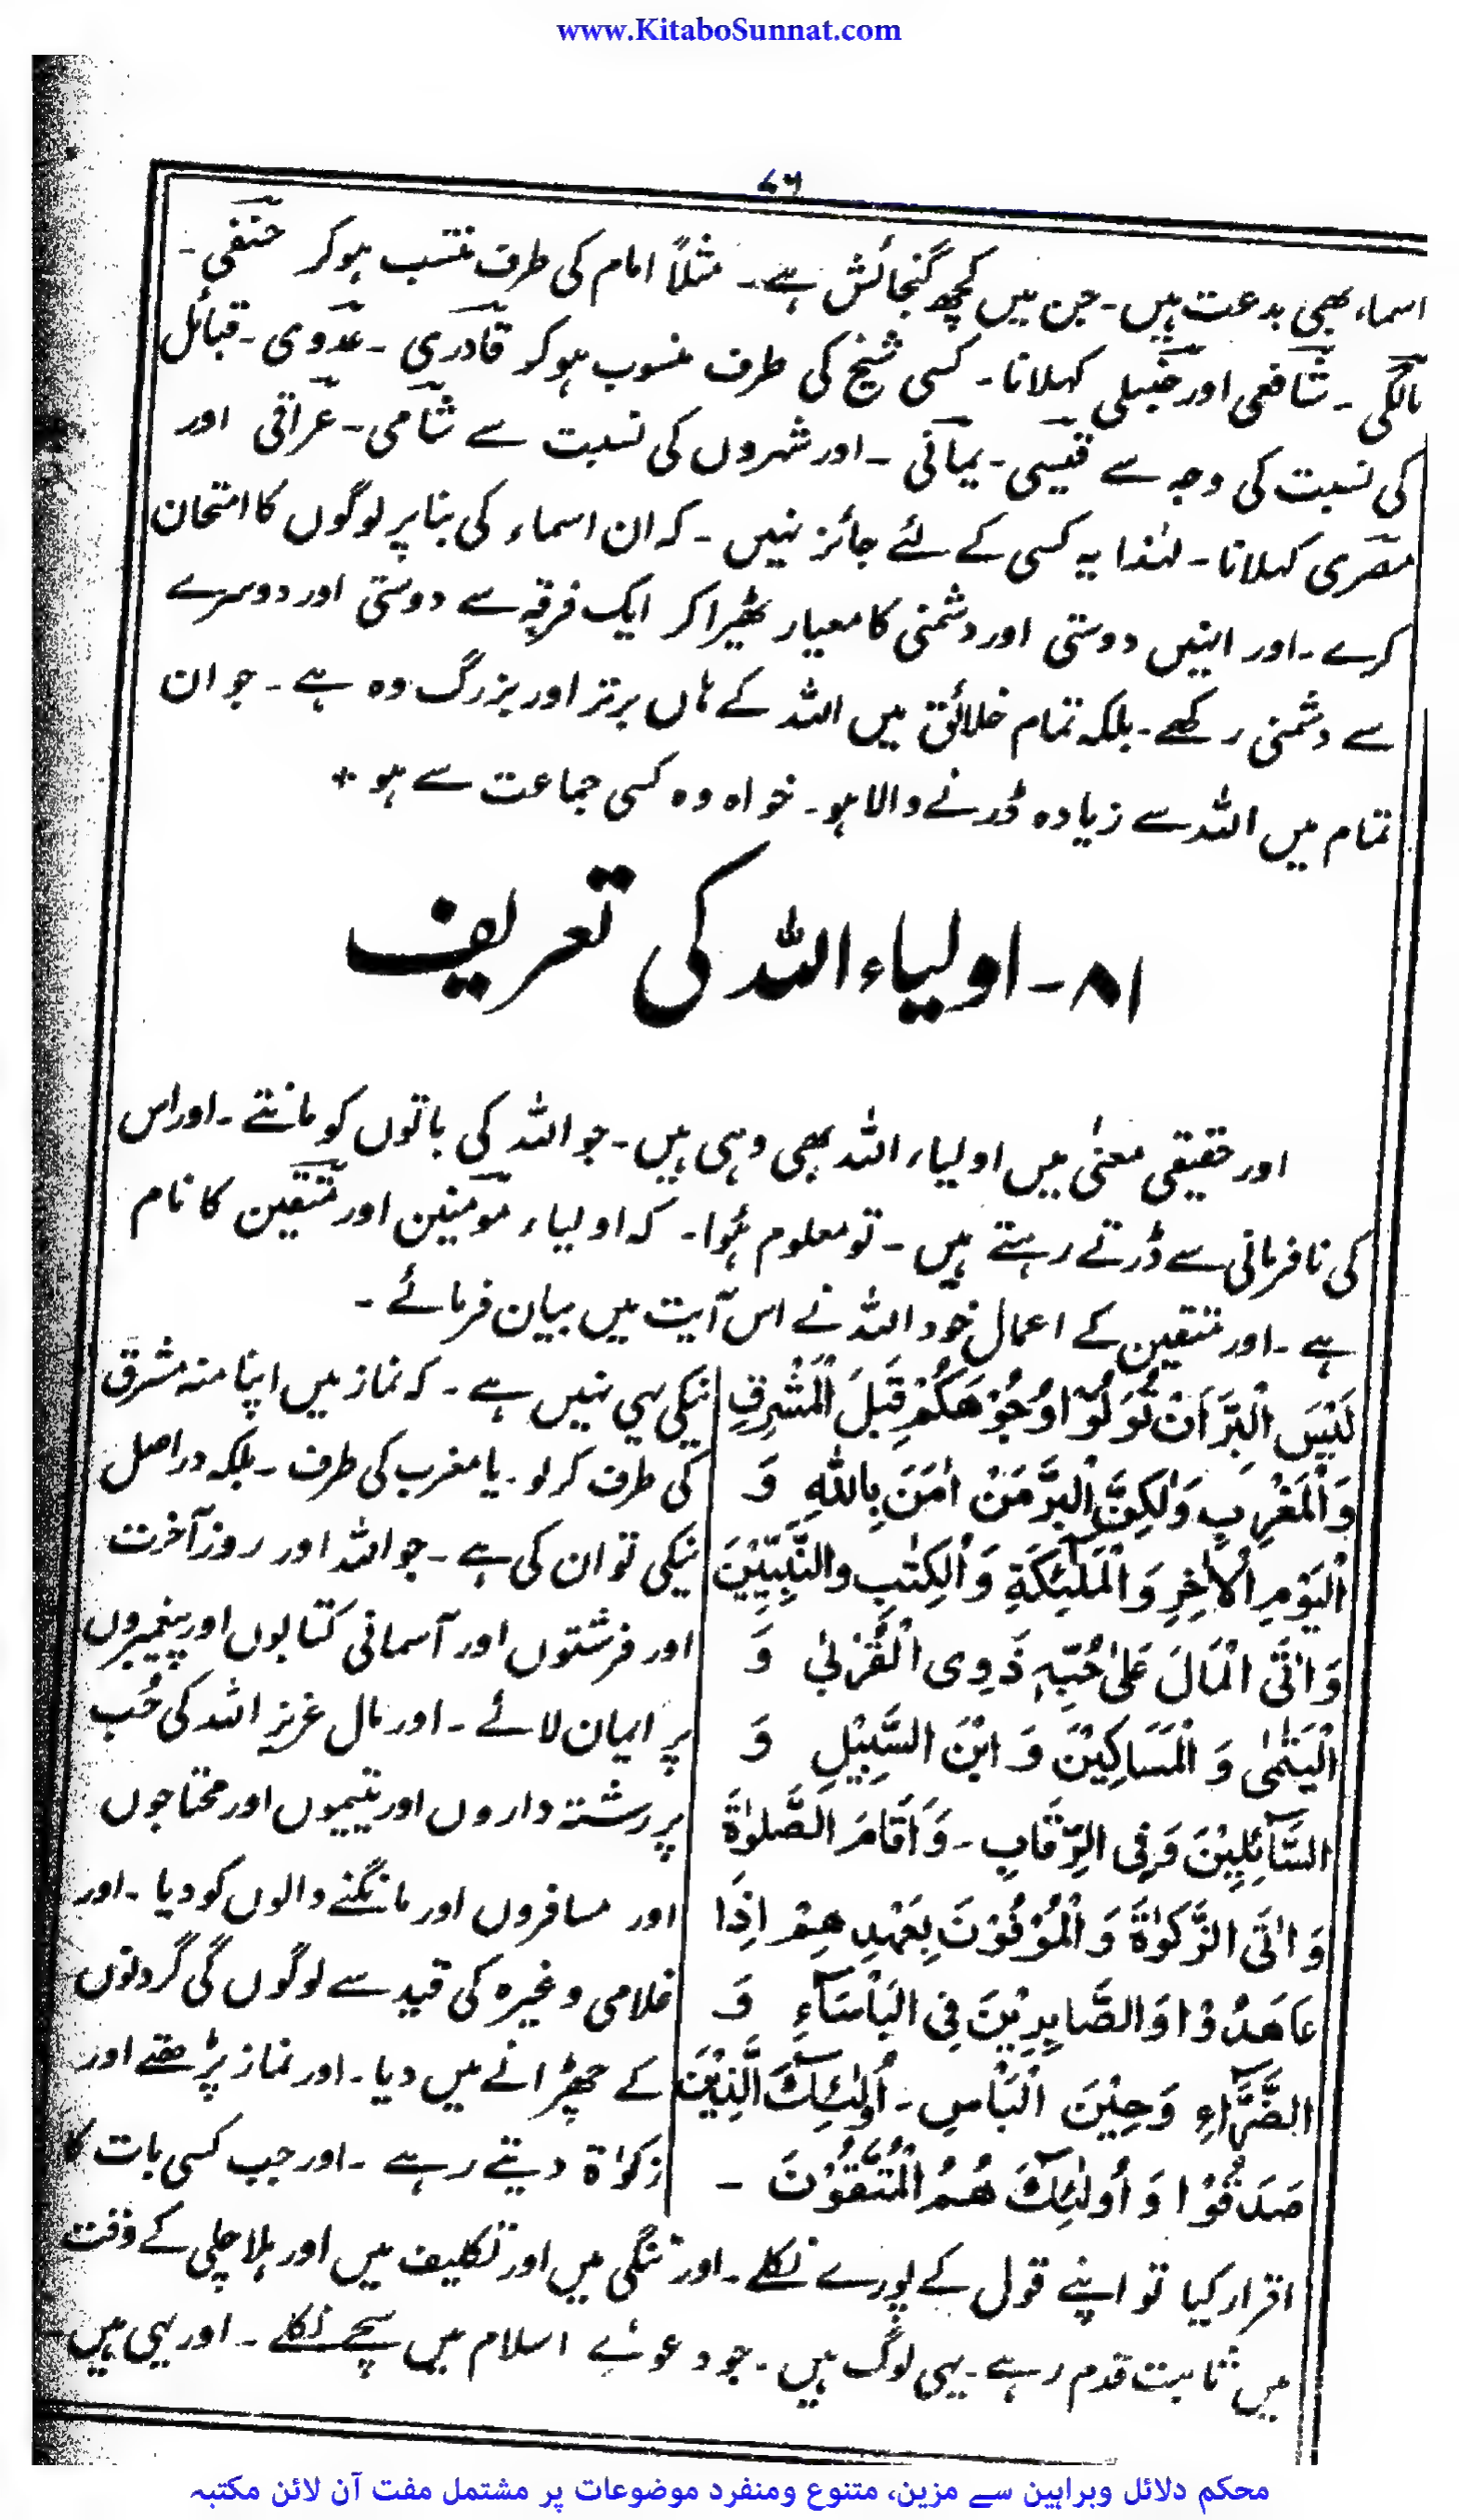 www.KitaboSunnat.com
۷۶
اسماء بھی بدعت ہیں۔ جن میں کچھ گنجائش ہے۔ مثلاً امام کی طرف منتسب ہوکر حنفی۔
مالکی۔ شافعی اور حنبلی کہلانا۔ کسی شیخ کی طرف منسوب ہوکر قادری۔ عدوی۔ قبائل
کی نسبت کی وجہ سے قیسی۔ یمانی۔ اور شہروں کی نسبت سے شامی۔ عراقی اور
مصری کہلانا۔ لہٰذا یہ کسی کے لئے جائز نہیں۔ کہ ان اسماء کی بنا پر لوگوں کا امتحان
کرے۔ اور انہیں دوستی اور دشمنی کا معیار ٹھیرا کر ایک فرقہ سے دوستی اور دوسرے
سے دشمنی رکھے۔ بلکہ تمام خلائق میں اللہ کے ہاں برتر اور بزرگ وہ ہے۔ جو ان
تمام میں اللہ سے زیادہ ڈرنے والا ہو۔ خواہ وہ کسی جماعت سے ہو +
۸۱۔ اولیاء اللہ کی تعریف
اور حقیقی معنیٰ میں اولیاء اللہ بھی وہی ہیں۔ جو اللہ کی باتوں کو مانتے۔ اور اس
کی نافرمانی سے ڈرتے رہتے ہیں۔ تو معلوم ہُوا۔ کہ اولیاء مومنین اور متقین کا نام
ہے۔ اور متقین کے اعمال خود اللہ نے اس آیت میں بیان فرمائے۔
لَیْسَ الْبِرَّ اَنْ تُوَلُّوْا وُجُوْهَكُمْ قِبَلَ الْمَشْرِقِ
وَالْمَغْرِبِ وَلٰكِنَّ الْبِرَّ مَنْ اٰمَنَ بِاللّٰهِ وَ
الْیَوْمِ الْاٰخِرِ وَالْمَلٰٓئِكَةِ وَالْكِتٰبِ والنَّبِیِّیْنَ
وَاٰتَى الْمَالَ عَلٰى حُبِّهٖ ذَوِى الْقُرْبٰى وَ
الْیَتٰمٰى وَ الْمَسَاكِیْنَ وَ ابْنَ السَّبِیْلِ وَ
السَّآئِلِیْنَ وَفِى الرِّقَابِ۔ وَاَقَامَ الصَّلٰوةَ
وَاٰتَى الزَّكٰوةَ وَالْمُوْفُوْنَ بِعَهْدِهِمْ اِذَا
عَاهَدُوْا وَالصَّابِرِیْنَ فِى الْبَاْسَآءِ وَ
الضَّرَّآءِ وَحِیْنَ الْبَاْسِ۔ اُولٰٓئِكَ الَّذِیْنَ
صَدَقُوْا وَاُولٰٓئِكَ هُمُ الْمُتَّقُوْنَ۔
نیکی یہی نہیں ہے۔ کہ نماز میں اپنا منہ مشرق
کی طرف کر لو۔ یا مغرب کی طرف۔ بلکہ دراصل
نیکی تو ان کی ہے۔ جو اللہ اور روز آخرت
اور فرشتوں اور آسمانی کتابوں اور پیغمبروں
پر ایمان لائے۔ اور مال عزیز اللہ کی حُب
پر رشتہ داروں اور یتیموں اور محتاجوں
اور مسافروں اور مانگنے والوں کو دیا۔ اور
غلامی وغیرہ کی قید سے لوگوں گی گردنوں
کے چھڑانے میں دیا۔ اور نماز پڑھتے اور
زکوٰۃ دیتے رہے۔ اور جب کسی بات کا
اقرار کیا تو اپنے قول کے پورے نکلے۔ اور تنگی میں اور تکلیف میں اور ہلا چلی کے وقت
میں ثابت قدم رہے۔ یہی لوگ ہیں۔ جو دعوےٰ اسلام میں سچے نکلے۔ اور یہی ہیں
محکم دلائل وبراہین سے مزین، متنوع ومنفرد موضوعات پر مشتمل مفت آن لائن مکتبہ